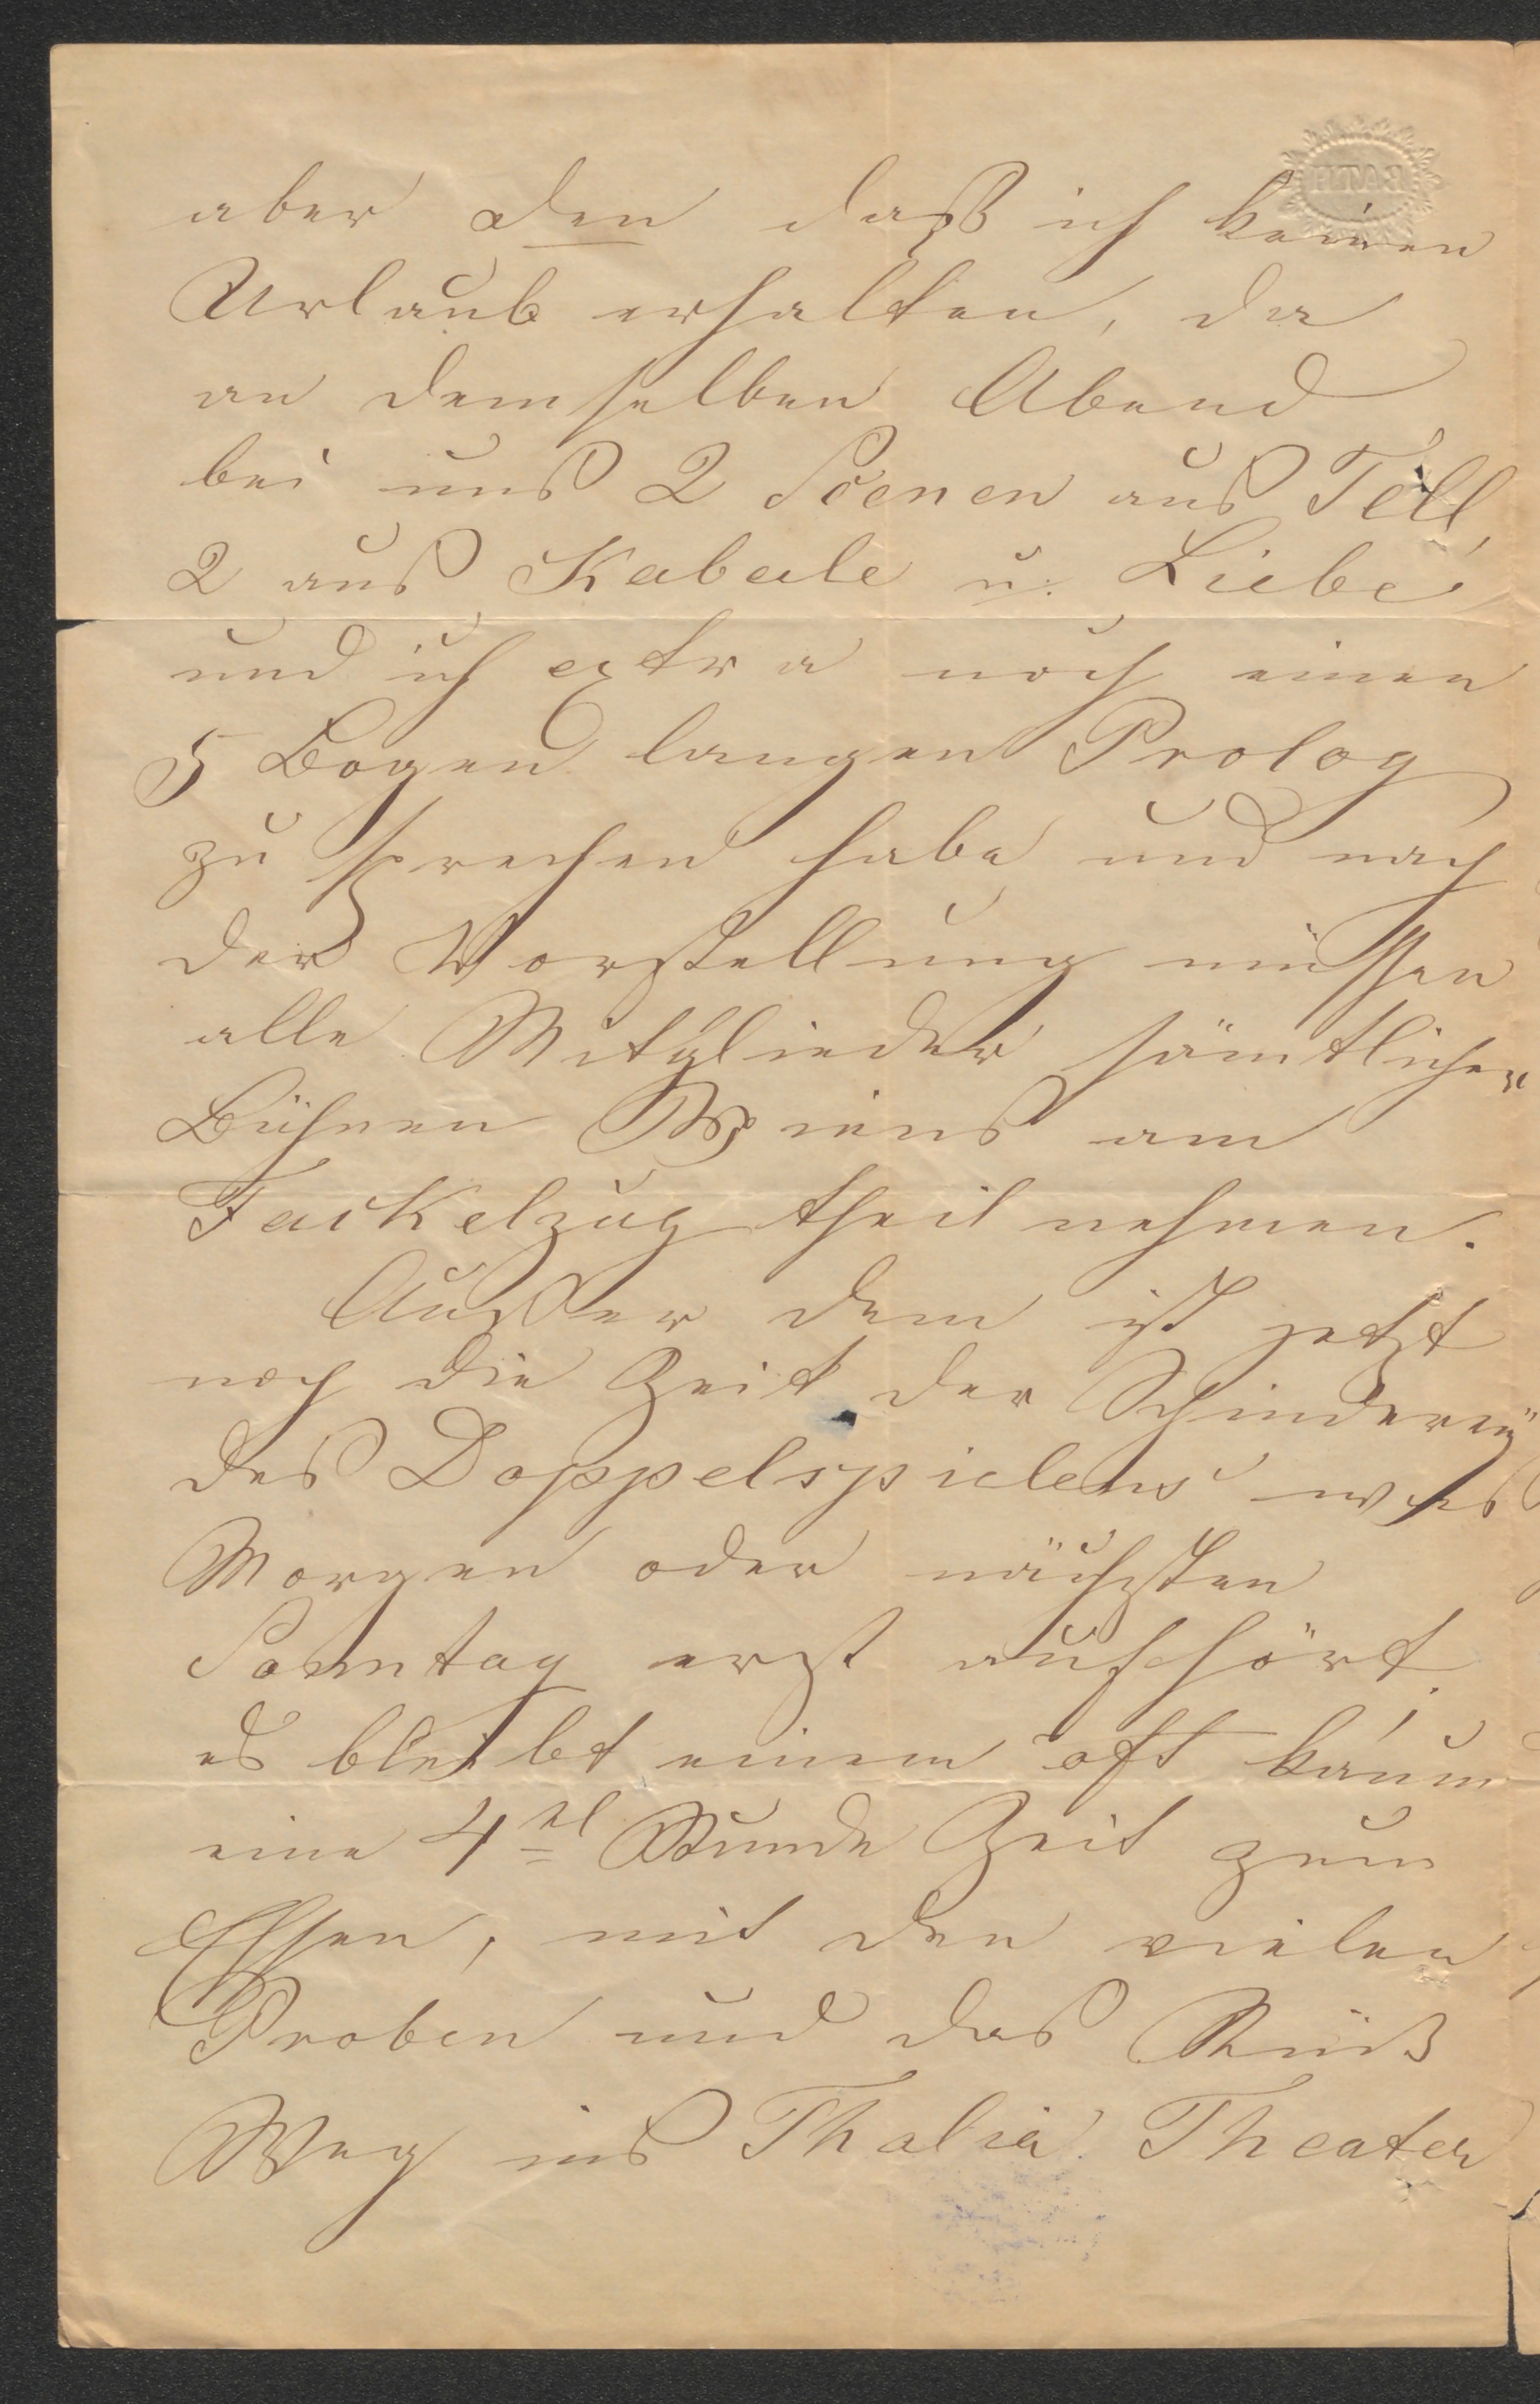 BATH
aber den daß ich keinen
Urlaub erhalten, da
an demselben Abend
bei uns 2 Scenen aus Tell,
2 aus Kabale u. Liebe
und ich extra noch einen
5 Bogen langen Prolog
zu sprechen habe und nach
der Vorstellung müssen
alle Mitglieder sämtlicher
Bühnen Wiens am
Fackelzug theil nehmen.
Ausser dem ist jetzt
noch die Zeit der Schinderey
des Doppelspielens was
Morgen oder nächsten
Sonntag erst aufhört,
es bleibt einem oft kaum
eine 4tel Stunde Zeit zum
Essen, mit den vielen
Proben und das
Weg ins Thalia Theater